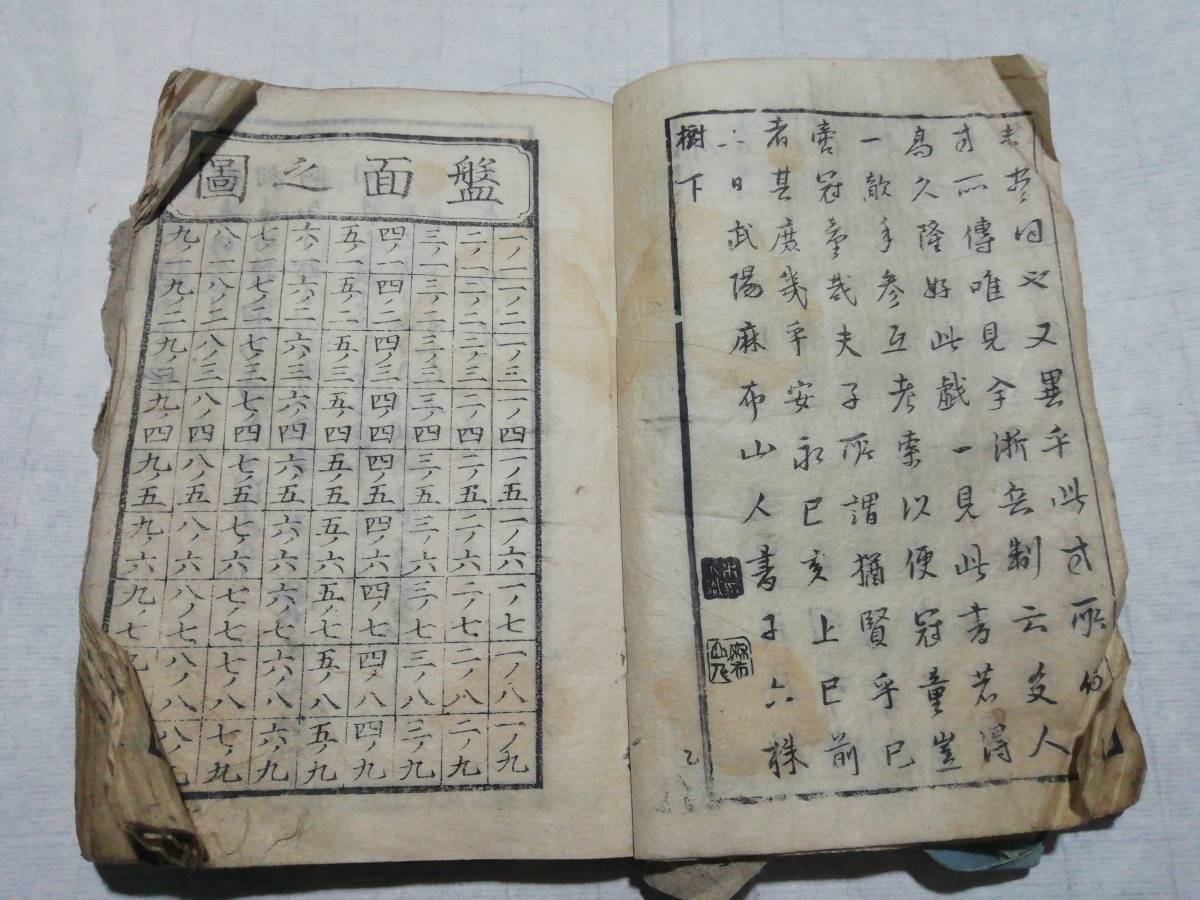 未嘗同也又異乎此方所
方所傳唯見全浙兵制云友人
高久隆好此戲一見此書若得
一敵手參互考索以便冠童豈
啻冠童哉夫子所謂猶賢乎已
者其庶幾乎安永己亥上巳前
二日武陽麻布山人書于六株
樹下
麻布山人
乙
盤面之圖
一ノ一 一ノ二 一ノ三 一ノ四 一ノ五 一ノ六 一ノ七 一ノ八 一ノ九
二ノ一 二ノ二 二ノ三 二ノ四 二ノ五 二ノ六 二ノ七 二ノ八 二ノ九
三ノ一 三ノ二 三ノ三 三ノ四 三ノ五 三ノ六 三ノ七 三ノ八 三ノ九
四ノ一 四ノ二 四ノ三 四ノ四 四ノ五 四ノ六 四ノ七 四ノ八 四ノ九
五ノ一 五ノ二 五ノ三 五ノ四 五ノ五 五ノ六 五ノ七 五ノ八 五ノ九
六ノ一 六ノ二 六ノ三 六ノ四 六ノ五 六ノ六 六ノ七 六ノ八 六ノ九
七ノ一 七ノ二 七ノ三 七ノ四 七ノ五 七ノ六 七ノ七 七ノ八 七ノ九
八ノ一 八ノ二 八ノ三 八ノ四 八ノ五 八ノ六 八ノ七 八ノ八 八ノ九
九ノ一 九ノ二 九ノ三 九ノ四 九ノ五 九ノ六 九ノ七